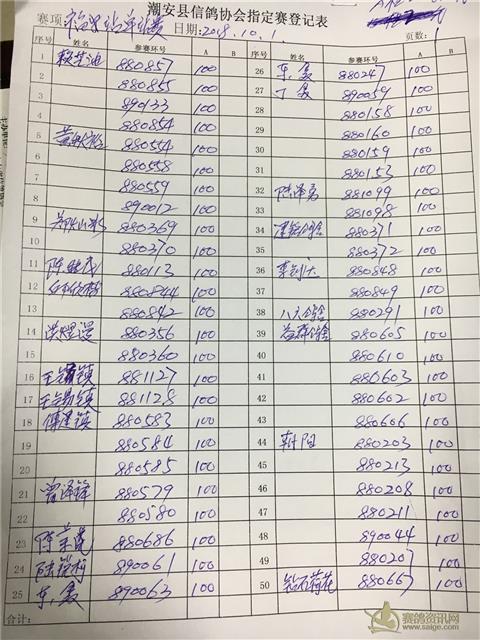 潮安县信鸽协会指定赛登记表
赛项: 日期:2018.10.1 页数:1
序号 姓名 参赛环号 A B 序号 姓名 参赛环号 A B
1 880857 100 26 东, 880247 100
2 880855 100 27 丁 890059 100
3 890133 100 28 880158 100
4 880854 100 29 880160 100
5 880554 100 30 880159 100
6 880558 100 31 880153 100
7 880559 100 32 陆泽勇 881099 100
8 890012 100 33 881098 100
9 880369 100 34 880371 100
10 880370 100 35 880372 100
11 陈 880113 100 36 880848 100
12 880844 100 37 880849 100
13 880842 100 38 八六鸽舍 880291 100
14 880356 100 39 益群鸽舍 880605 100
15 880360 100 40 880610 100
16 王 镇 881127 100 41 880603 100
17 王 镇 881128 100 42 880602 100
18 傅 镇 880583 100 43 880606 100
19 880584 100 44 朝阳 880203 100
20 880585 100 45 880213 100
21 曾泽锋 880579 100 46 880208 100
22 880580 100 47 880211 100
23 陈 880686 100 48 890044 100
24 陆 890061 100 49 880207 100
25 东, 890063 100 50 钻石荷花 880667 100
合计:
赛鸽资讯网
www.saige.com